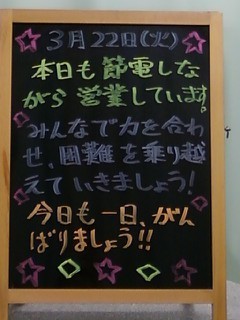 3月22日(火)
本日も節電しな
がら営業しています。
みんなで力を合わ
せ、困難を乗り越
えていきましょう!
今日も一日、がん
ばりましょう!!